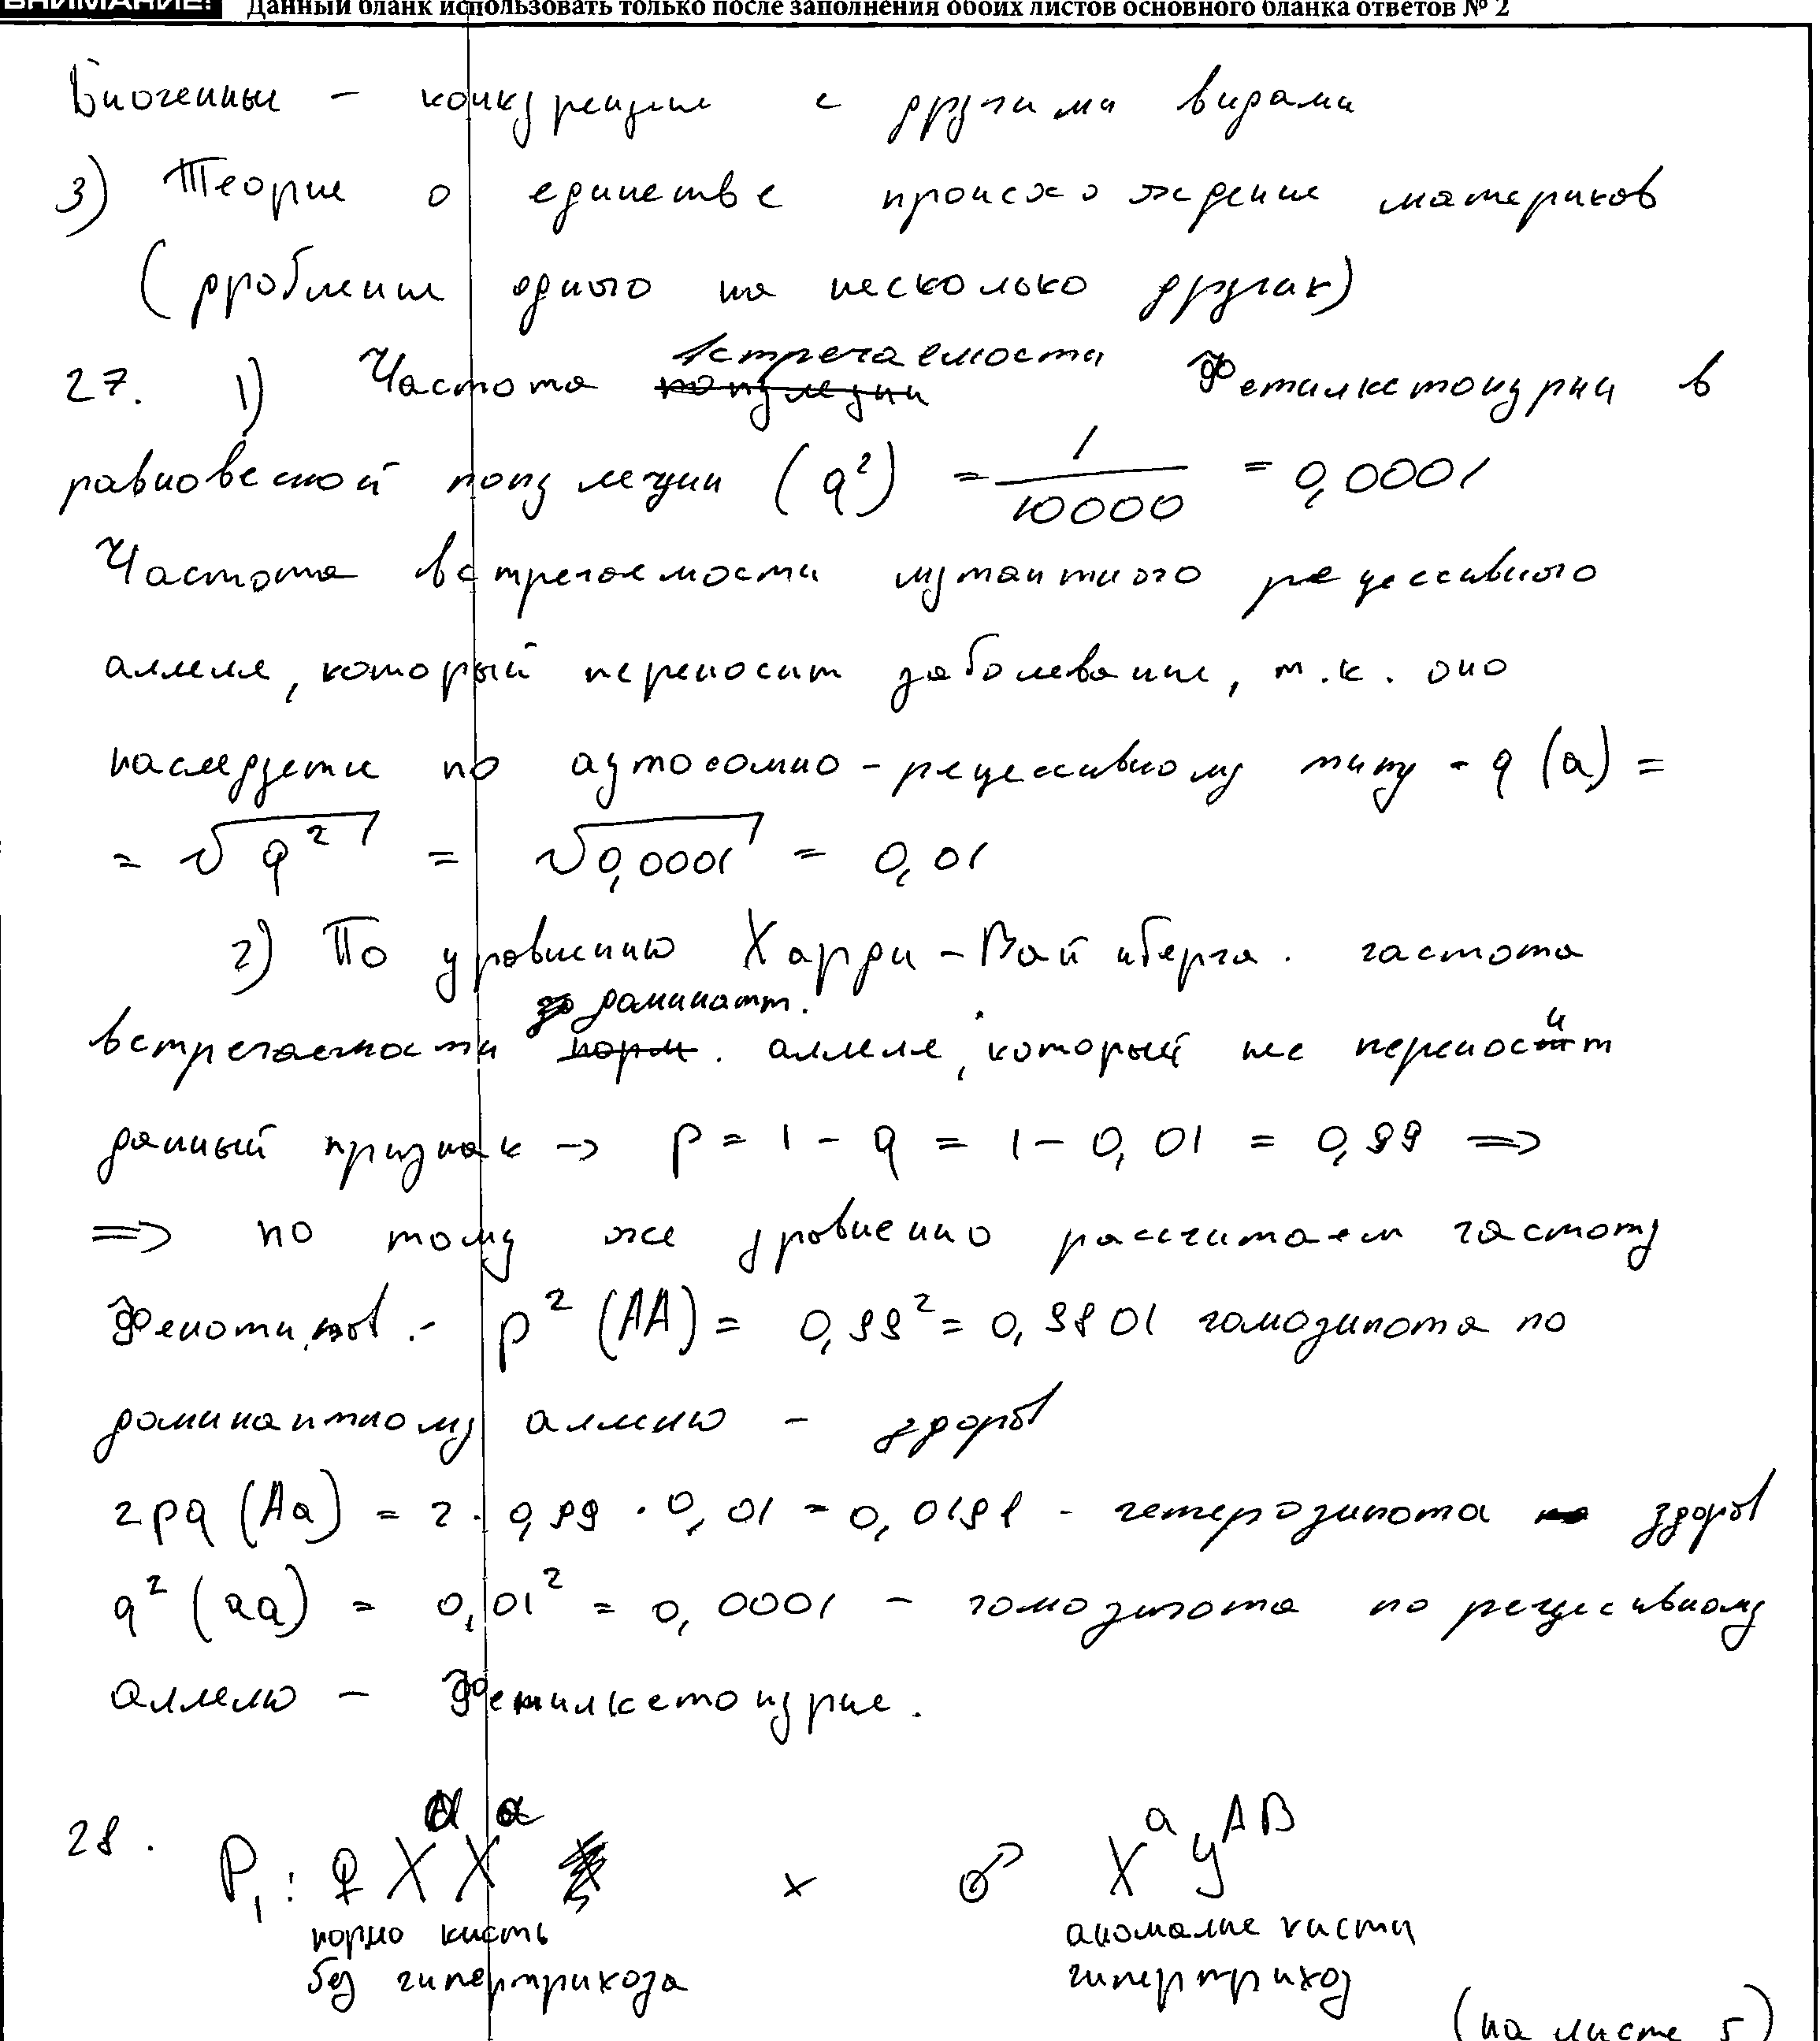 ВНИМАНИЕ! Данный бланк использовать только после заполнения обоих листов основного бланка ответов № 2
Биогенные - конкуренция с другими видами
3) Теория о единстве происхождение материков
(дробление одного на несколько других)
27. 1) Частота популяции встречаемости Фенилкетонурии в
равновесной популяции (q²) = 1/10000 = 0,0001
Частота встречаемости мутантного рецессивного
аллеля, который переносит заболевание, т.к. оно
наследуется по аутосомно-рецессивному типу - q (a) =
= √q² = √0,0001 = 0,01
2) По уровнению Харди-Вайнберга. частота
встречаемости норм. доминант. аллеля, который не переносит
данный признак -> p = 1 - q = 1 - 0,01 = 0,99 =>
=> по тому же уровнению рассчитаем частоту
Фенотипов.- p² (AA) = 0,99² = 0,9801 гомозигота по
доминантному аллелю - здоров
2pq (Aa) = 2 · 0,99 · 0,01 = 0,0198 - гетерозигота здоров
q² (aa) = 0,01² = 0,0001 - гомозигота по рецессивному
аллелю - Фенилкетонурие.
28. P₁: ♀ XᵃXᵃ x ♂ XᵃYᴬᴮ
норма кисть аномалие кисти
без гипертрихоза гипертрихоз
(на листе 5)